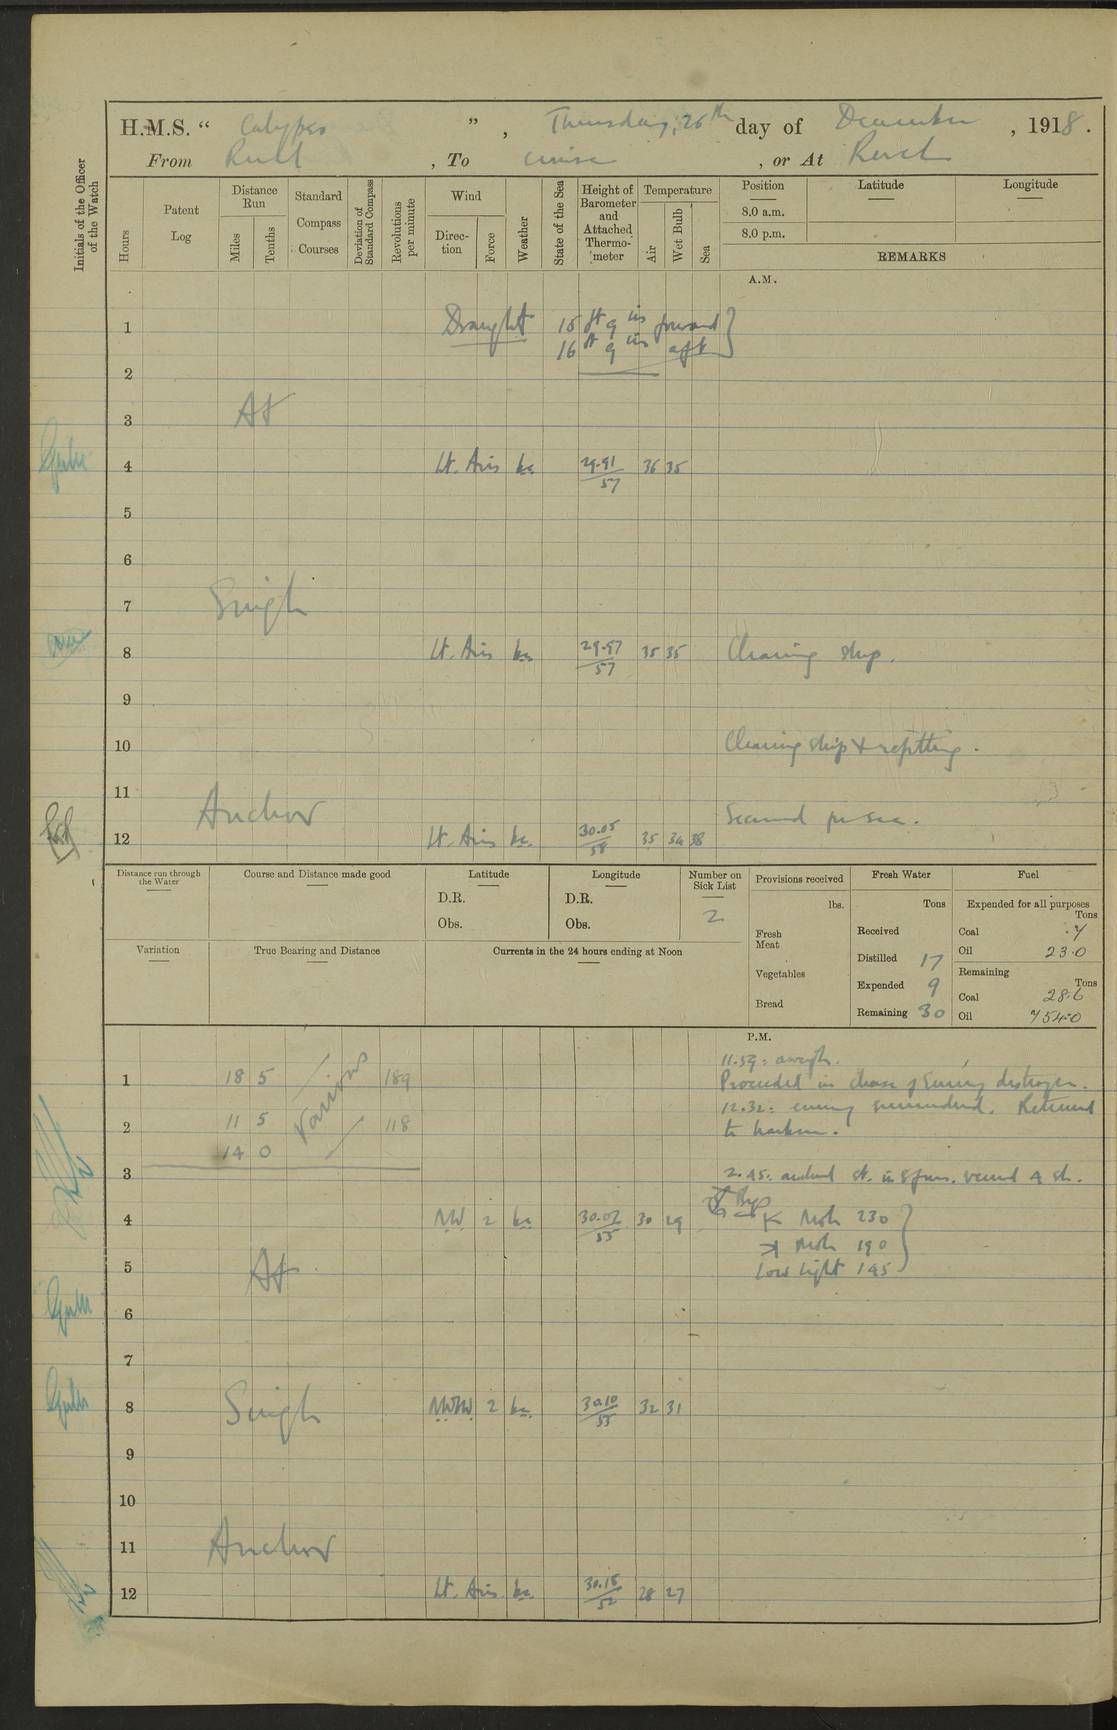 H.M.S. “ Calypso ” , Thursday, 26th day of December , 1918 .
From Revel , To cruise , or At Revel
Initials of the Officer of the Watch
Hours
Patent Log
Distance Run
Miles
Tenths
Standard Compass Courses
Deviation of Standard Compass
Revolutions per minute
Wind
Direc-tion
Force
Weather
State of the Sea
Height of Barometer and Attached Thermo-meter
Temperature
Air
Wet Bulb
Sea
Position
8.0 a.m.
8.0 p.m.
Latitude
Longitude
REMARKS
A.M.
1 Draught 15 ft 9 ins forward
16 ft 9 ins aft
2
3 At
4 Lt. Airs bc 29.91/57 36 35
5
6
7 Single
8 Lt. Airs bc. 29.97/57 35 35 Cleaning ship.
9
10 Cleaning ship & refitting.
11 Anchor
Secured for sea.
12 Lt. Airs bc. 30.05/58 35 34 38
Distance run through the Water
Course and Distance made good
Latitude
D.R.
Obs.
Longitude
D.R.
Obs.
Number on Sick List
2
Provisions received
lbs.
Fresh Meat
Vegetables
Bread
Fresh Water
Tons
Received
Distilled 17
Expended 9
Remaining 30
Fuel
Expended for all purposes
Tons
Coal .7
Oil 23.0
Remaining
Tons
Coal 28.6
Oil 754.0
Variation
True Bearing and Distance
Currents in the 24 hours ending at Noon
P.M.
11.59: aweigh.
1 18 5 Various 189 Proceeded in chase of Enemy destroyer.
12.32: enemy surrendered. Returned
2 11 5 118 to harbour.
14 0
3 2.45: anchd st. in 8 fms. veered 4 sh.
4 NW 2 bc 30.02/55 30 29 K Mole 230
Mole 190
5 At Low light 145
6
7
8 Single NWW. 2 bc. 30.10/55 32 31
9
10
11 Anchor
12 Lt. Airs. bc. 30.15/52 28 27